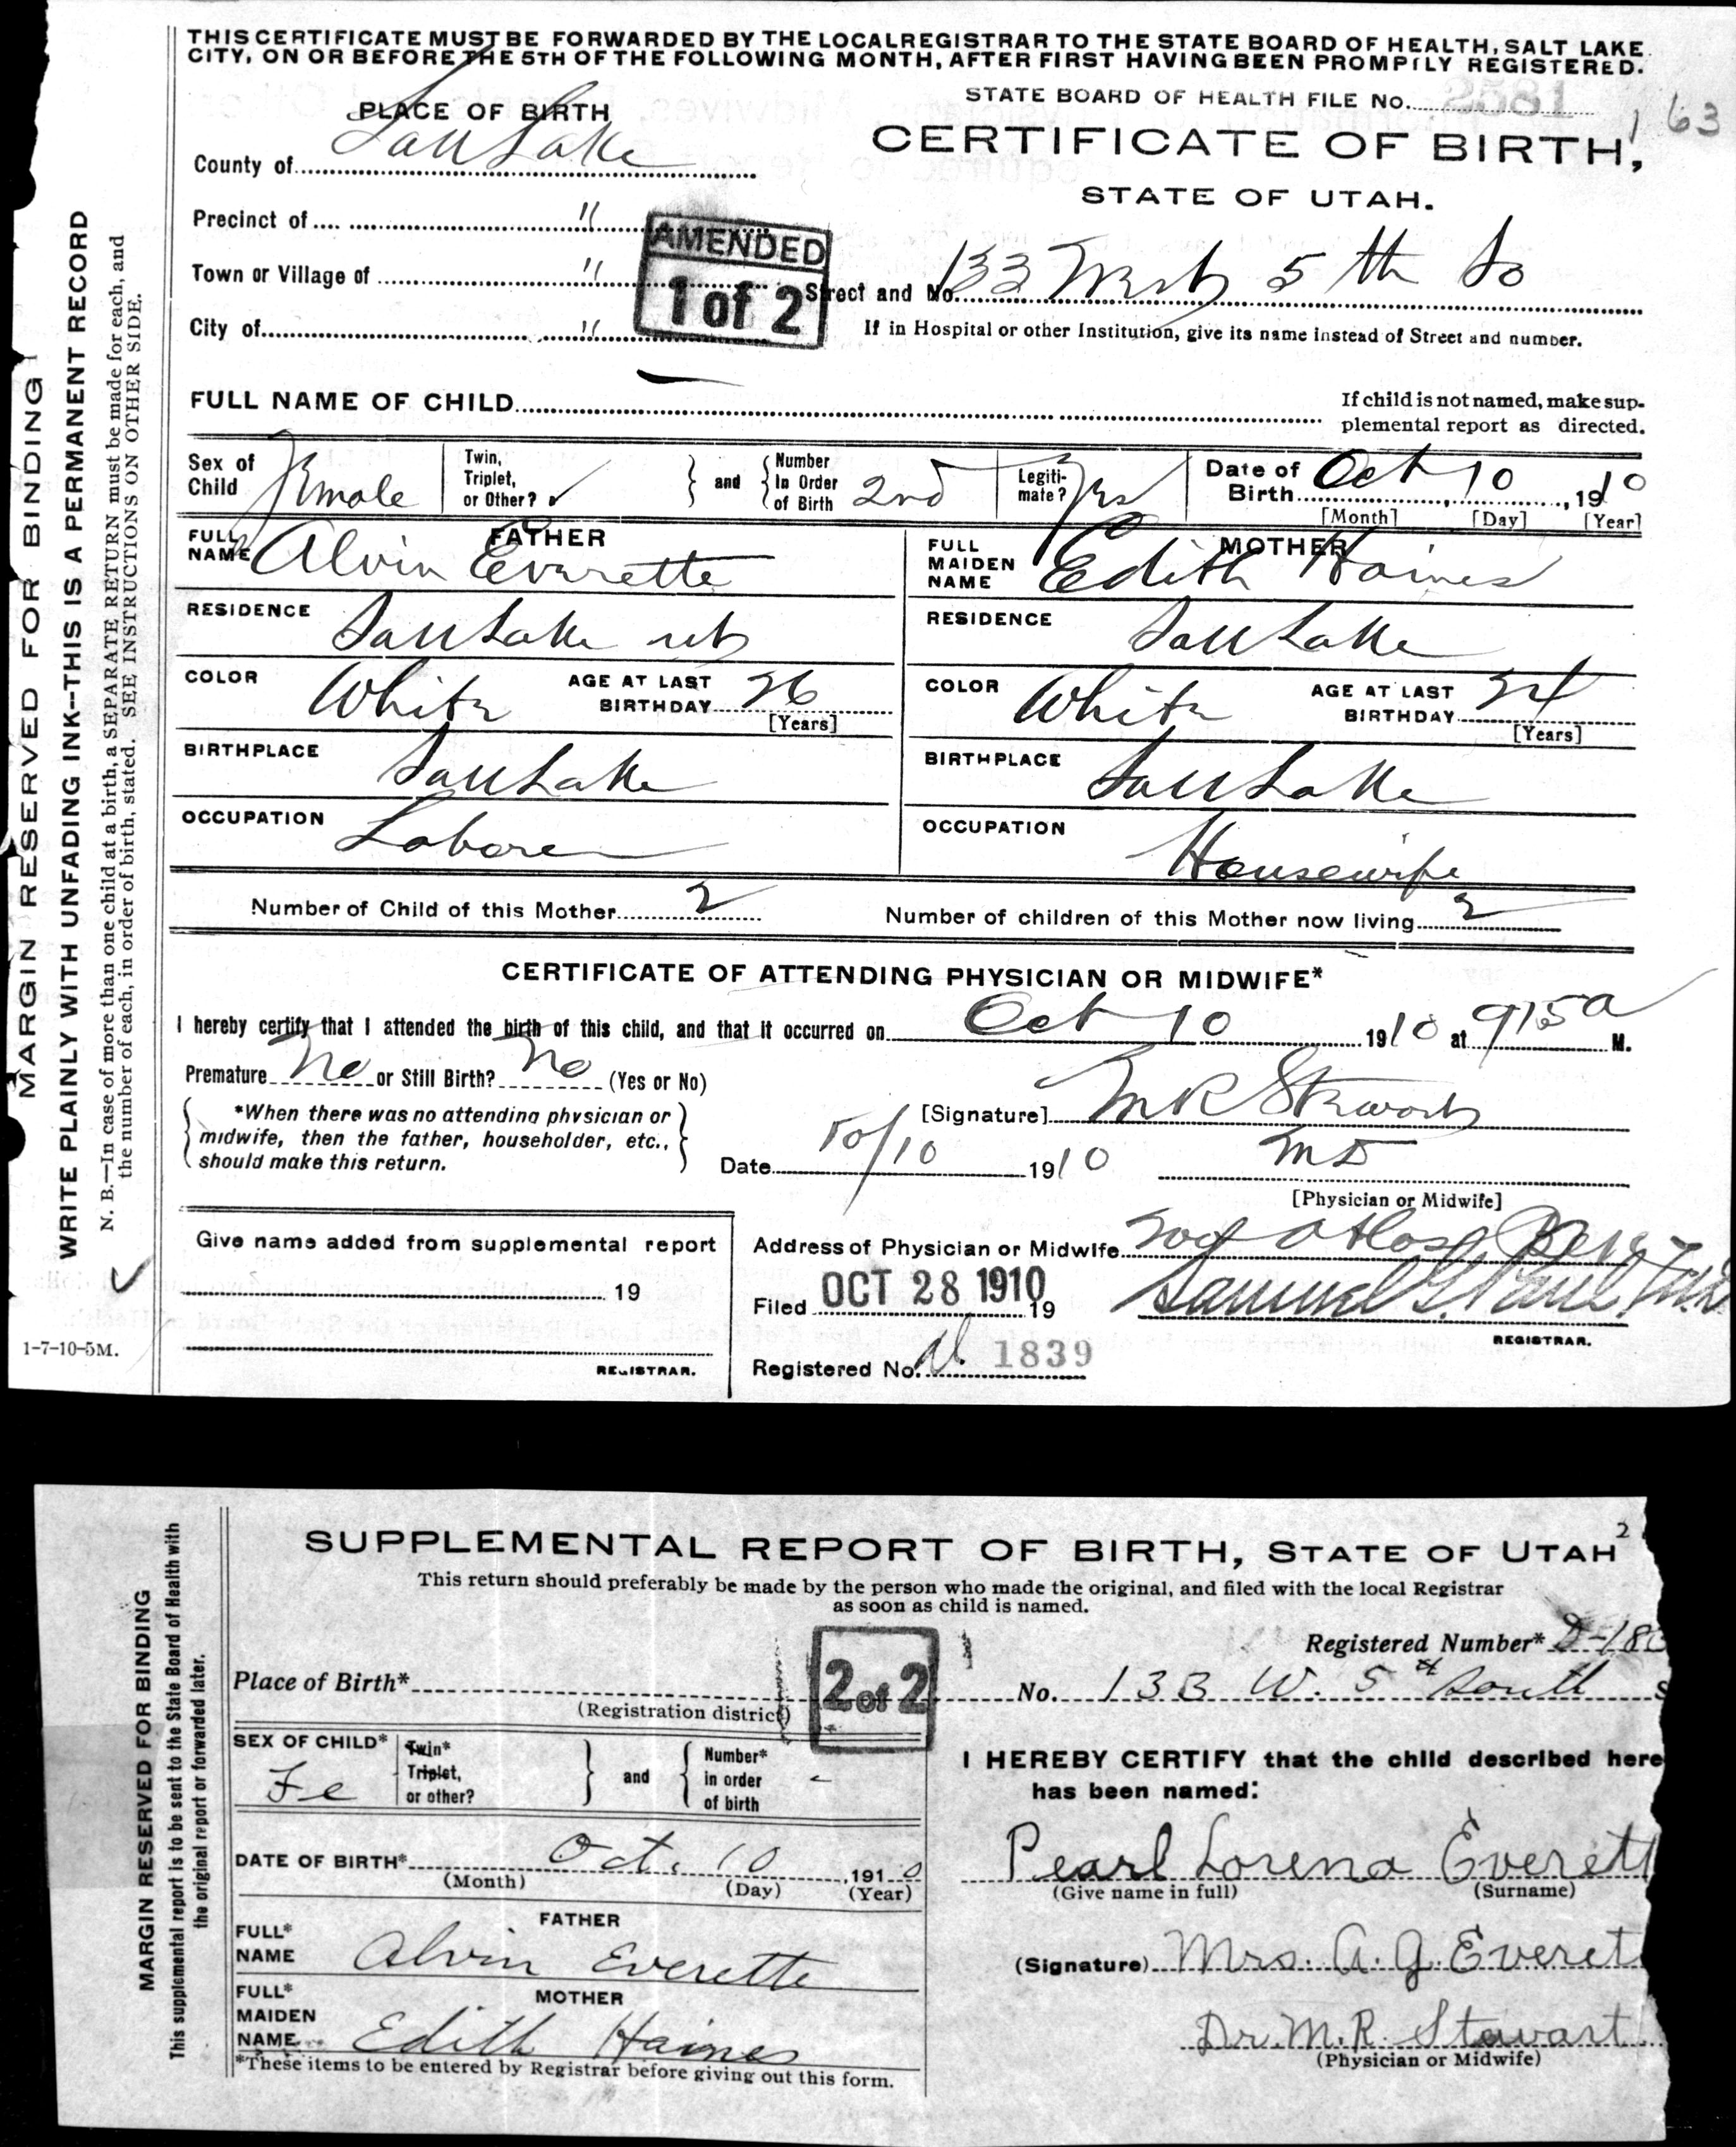 THIS CERTIFICATE MUST BE FORWARDED BY THE LOCAL REGISTRAR TO THE STATE BOARD OF HEALTH, SALT LAKE
CITY, ON OR BEFORE THE 5TH OF THE FOLLOWING MONTH, AFTER FIRST HAVING BEEN PROMPTLY REGISTERED.
STATE BOARD OF HEALTH FILE No. 2581
163
PLACE OF BIRTH
CERTIFICATE OF BIRTH,
STATE OF UTAH.
County of Salt Lake
Precinct of "
Town or Village of "
City of "
AMENDED
1 of 2
Street and No. 133 West 5th So
If in Hospital or other Institution, give its name instead of Street and number.
FULL NAME OF CHILD
If child is not named, make sup-
plemental report as directed.
Sex of Child Female
Twin, Triplet, or Other? ✓
and
Number In Order of Birth 2nd
Legiti-mate? Yes
Date of Birth Oct 10, 1910
[Month] [Day] [Year]
FATHER
FULL NAME Alvin Everette
RESIDENCE Salt Lake ut
COLOR White AGE AT LAST BIRTHDAY 26
[Years]
BIRTHPLACE Salt Lake
OCCUPATION Laborer
MOTHER
FULL MAIDEN NAME Edith Haines
RESIDENCE Salt Lake
COLOR White AGE AT LAST BIRTHDAY 24
[Years]
BIRTHPLACE Salt Lake
OCCUPATION Housewife
Number of Child of this Mother 2 Number of children of this Mother now living 2
CERTIFICATE OF ATTENDING PHYSICIAN OR MIDWIFE*
I hereby certify that I attended the birth of this child, and that it occurred on Oct 10 1910 at 915 a M.
Premature No or Still Birth? No (Yes or No)
*When there was no attending physician or
midwife, then the father, householder, etc.,
should make this return.
[Signature] M R Stewart
Date 10/10 1910 MD
[Physician or Midwife]
Give name added from supplemental report
19
REGISTRAR.
Address of Physician or Midwife Atlas
Filed OCT 28 1910 19 Samuel G. Paul
REGISTRAR.
Registered No. 1839
MARGIN RESERVED FOR BINDING
WRITE PLAINLY WITH UNFADING INK--THIS IS A PERMANENT RECORD
N. B.—In case of more than one child at a birth, a SEPARATE RETURN must be made for each, and
the number of each, in order of birth, stated. SEE INSTRUCTIONS ON OTHER SIDE.
✓
1-7-10-5M.
2
SUPPLEMENTAL REPORT OF BIRTH, STATE OF UTAH
This return should preferably be made by the person who made the original, and filed with the local Registrar
as soon as child is named.
Registered Number*
Place of Birth*
(Registration district)
2 of 2
No. 133 W. 5th South S
SEX OF CHILD* Fe
Twin* Triplet, or other?
and
Number* in order of birth -
DATE OF BIRTH* Oct. 10, 1910
(Month) (Day) (Year)
FATHER
FULL* NAME Alvin Everette
MOTHER
FULL* MAIDEN NAME Edith Haines
*These items to be entered by Registrar before giving out this form.
I HEREBY CERTIFY that the child described here
has been named:
Pearl Lorena Everett
(Give name in full) (Surname)
(Signature) Mrs. A. G. Everet
Dr. M. R. Stewart
(Physician or Midwife)
MARGIN RESERVED FOR BINDING
This supplemental report is to be sent to the State Board of Health with
the original report or forwarded later.